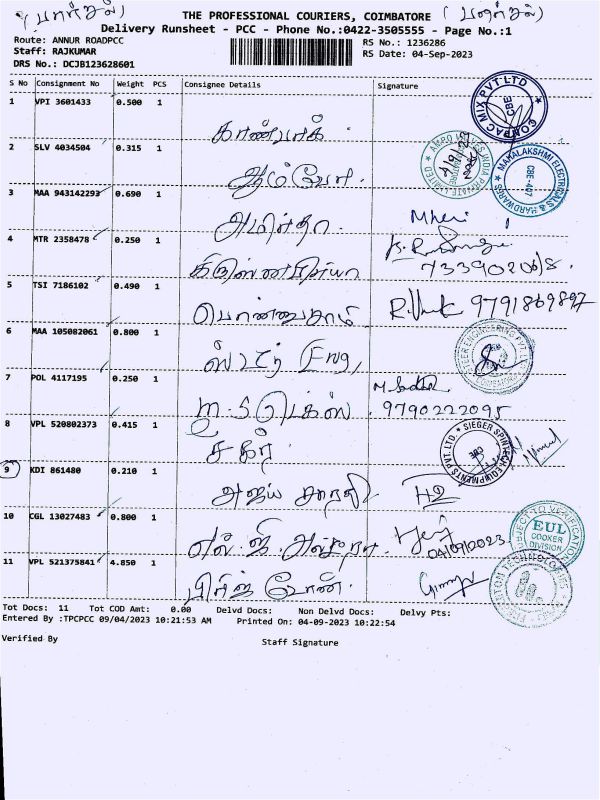 (பார்சல்) THE PROFESSIONAL COURIERS, COIMBATORE (பார்சல்)
Delivery Runsheet - PCC - Phone No.:0422-3505555 - Page No.:1
Route: ANNUR ROADPCC RS No.: 1236286
Staff: RAJKUMAR RS Date: 04-Sep-2023
DRS No.: DCJB123628601
S No Consignment No Weight PCS Consignee Details Signature
1 VPI 3601433 0.500 1
COMPAC MIX PVT LTD CBE
2 SLV 4034504 0.315 1
MAHALAKSHMI ELECTRICALS & HARDWARES CBE-407
3 MAA 943142293 0.690 1
அமிர்தா
4 MTR 2358478 0.250 1
கிருஷ்ணபிரியா
5 TSI 7186102 0.490 1
பொன்னுசாமி 9791869897
6 MAA 105082061 0.800 1
ஸ்டார் Eng,
7 POL 4117195 0.250 1
9790222095
8 VPL 520802373 0.415 1
SIEGER SPINTECH EQUIPMENTS PVT.LTD.
9 KDI 861480 0.210 1
அஜய் சாரதி
10 CGL 13027483 0.800 1
எல்.ஜி. 04/09/2023
SUBJECT TO VERIFICATION EUL DIVISION
11 VPL 521375841 4.850 1
Tot Docs: 11 Tot COD Amt: 0.00 Delvd Docs: Non Delvd Docs: Delvy Pts:
Entered By :TPCPCC 09/04/2023 10:21:53 AM Printed On: 04-09-2023 10:22:54
Verified By Staff Signature